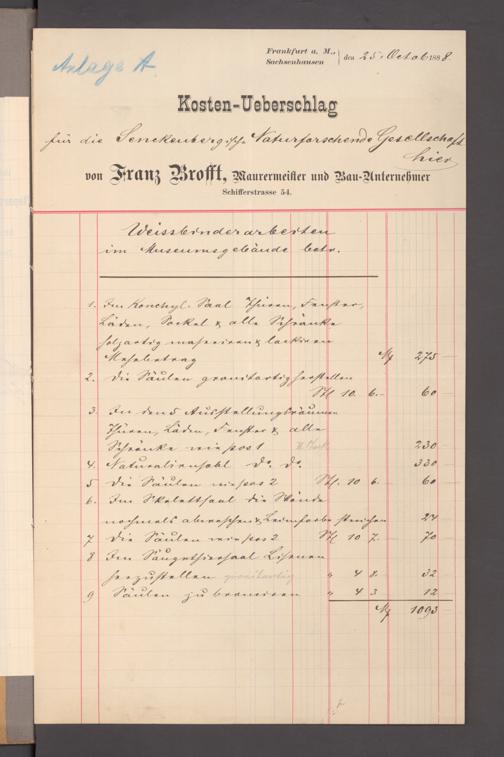 Anlage A
Frankfurt a. M.,
Sachsenhausen
den 25. Octob 1888.
Kosten-Ueberschlag
für die Senckenbergische Naturforschende Gesellschaft
hier
von Franz Brofft, Maurermeister und Bau-Unternehmer
Schifferstrasse 54.
Weissbinderarbeiten
im Museumsgebäude betr.
1. Im Konchyl. Saal Thüren, Fenster,
Läden, Sockel & alle Schränke
holzartig maseriren & lackiren
Mehrbetrag M 275 —
2. Die Säulen granitartig herstellen
Stk 10. 6.— 60 —
3. In den 5 Ausstellungsräumen
Thüren, Läden, Fenster & alle
Schränke wie pos 1 230 —
4. do. do. 330 —
5 Die Säulen wie pos 2 Stk. 10 6. — 60 —
6. Im Skelettsaal die Wände
nochmals abwaschen & Leimfarbe streichen 24
7. Die Säulen wie pos 2 Stk 10 7. 70
8 Im Säugethiersaal Lisenen
herzustellen granitartig " 4 8. 32
9 Säulen zu bronciren " 4 3 12
M 1093